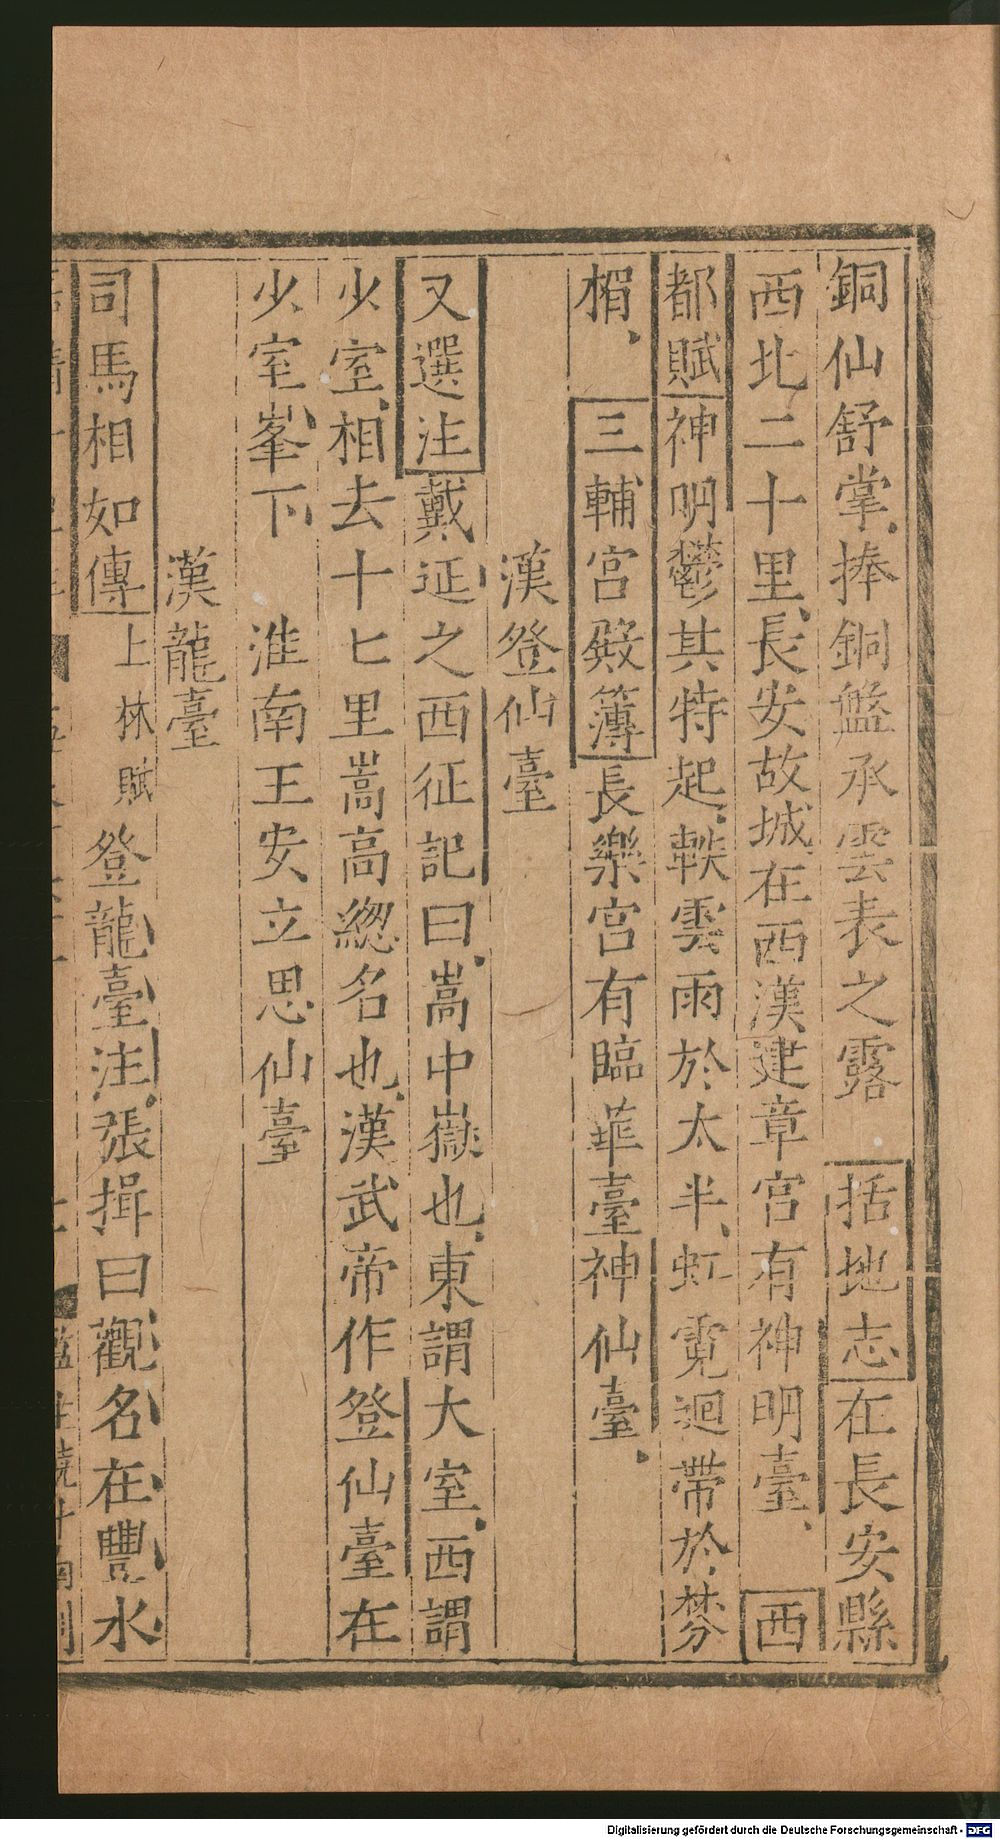 銅仙舒掌捧銅盤承雲表之露 括地志在長安縣
西北二十里長安故城在西漢建章宮有神明臺 西
都賦神明鬱其特起軼雲雨於太半虹霓迴帶於棼
楣 三輔宮殿簿長樂宮有臨華臺神仙臺
漢登仙臺
又選注戴延之西征記曰嵩中嶽也東謂大室西謂
少室相去十七里嵩高總名也漢武帝作登仙臺在
少室峯下 淮南王安立思仙臺
漢龍臺
司馬相如傳上林賦登龍臺注張揖曰觀名在豐水
Digitalisierung gefördert durch die Deutsche Forschungsgemeinschaft - DFG